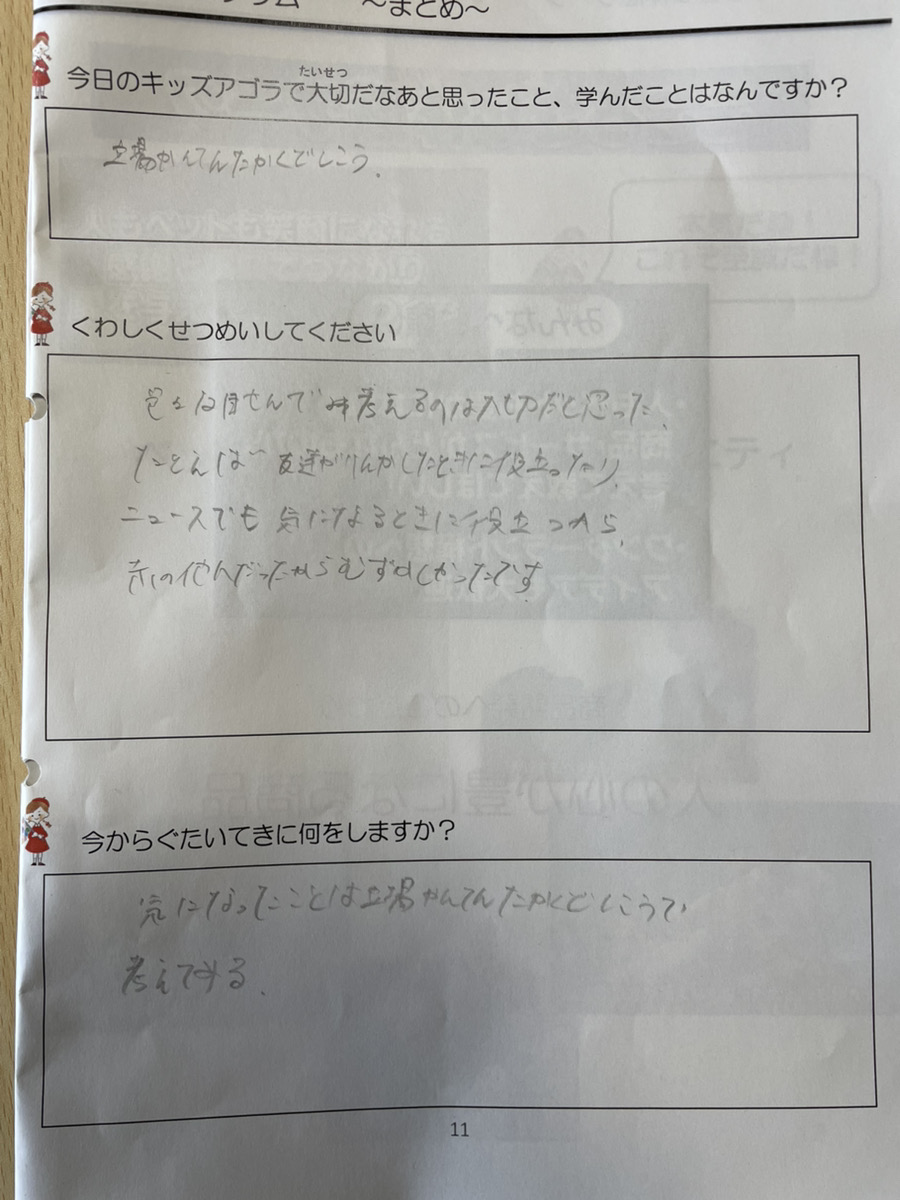 ～まとめ～
たいせつ
今日のキッズアゴラで大切だなあと思ったこと、学んだことはなんですか？
立場かんてんたかくどしこう.
くわしくせつめいしてください
色々な 考えるのは大切だと思った、
たとえば 友達がけんかしたときに役立ったり、
ニュースでも 気になるときに役立つから、
赤の他人だったからむずかしかったです
今からぐたいてきに何をしますか？
気になったことは立場かんてんたかくどしこうで
考えてみる.
11